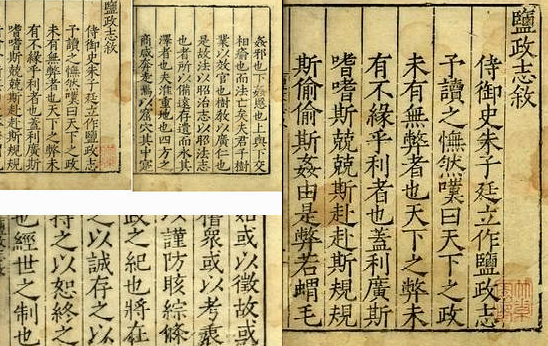 鹽政志敘
侍御史朱子廷立作鹽政志
予讀之憮然嘆曰天下之政
未有無弊者也天下之弊未
有不緣乎利者也蓋利廣斯
嗜嗜斯競競斯赴赴斯規規
斯偷偷斯姦由是弊若蝟毛
姦邪也下姦慝也上與下交
相瘉也而法亡矣夫君子樹
業以效官也樹教以廣仁也
是故法以昭治志以昭法志
也者所以備遠存遺而永其
澤者也夫淮重地也四方之
商咸奔走焉以窟穴其中寔
鹽政志敘
侍御史朱子廷立作鹽政志
予讀之憮然嘆曰天下之政
未有無弊者也天下之弊未
有不緣乎利者也蓋利廣斯
嗜嗜斯競競斯赴赴斯規規
或以徵故或
衆或以考衷
以謹防晐綜條
政之紀也將在
之以誠存之以
持之以恕終之
也經世之制也